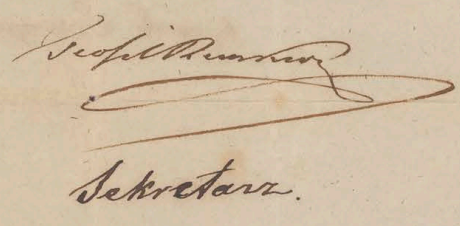 Teofil
Sekretarz.